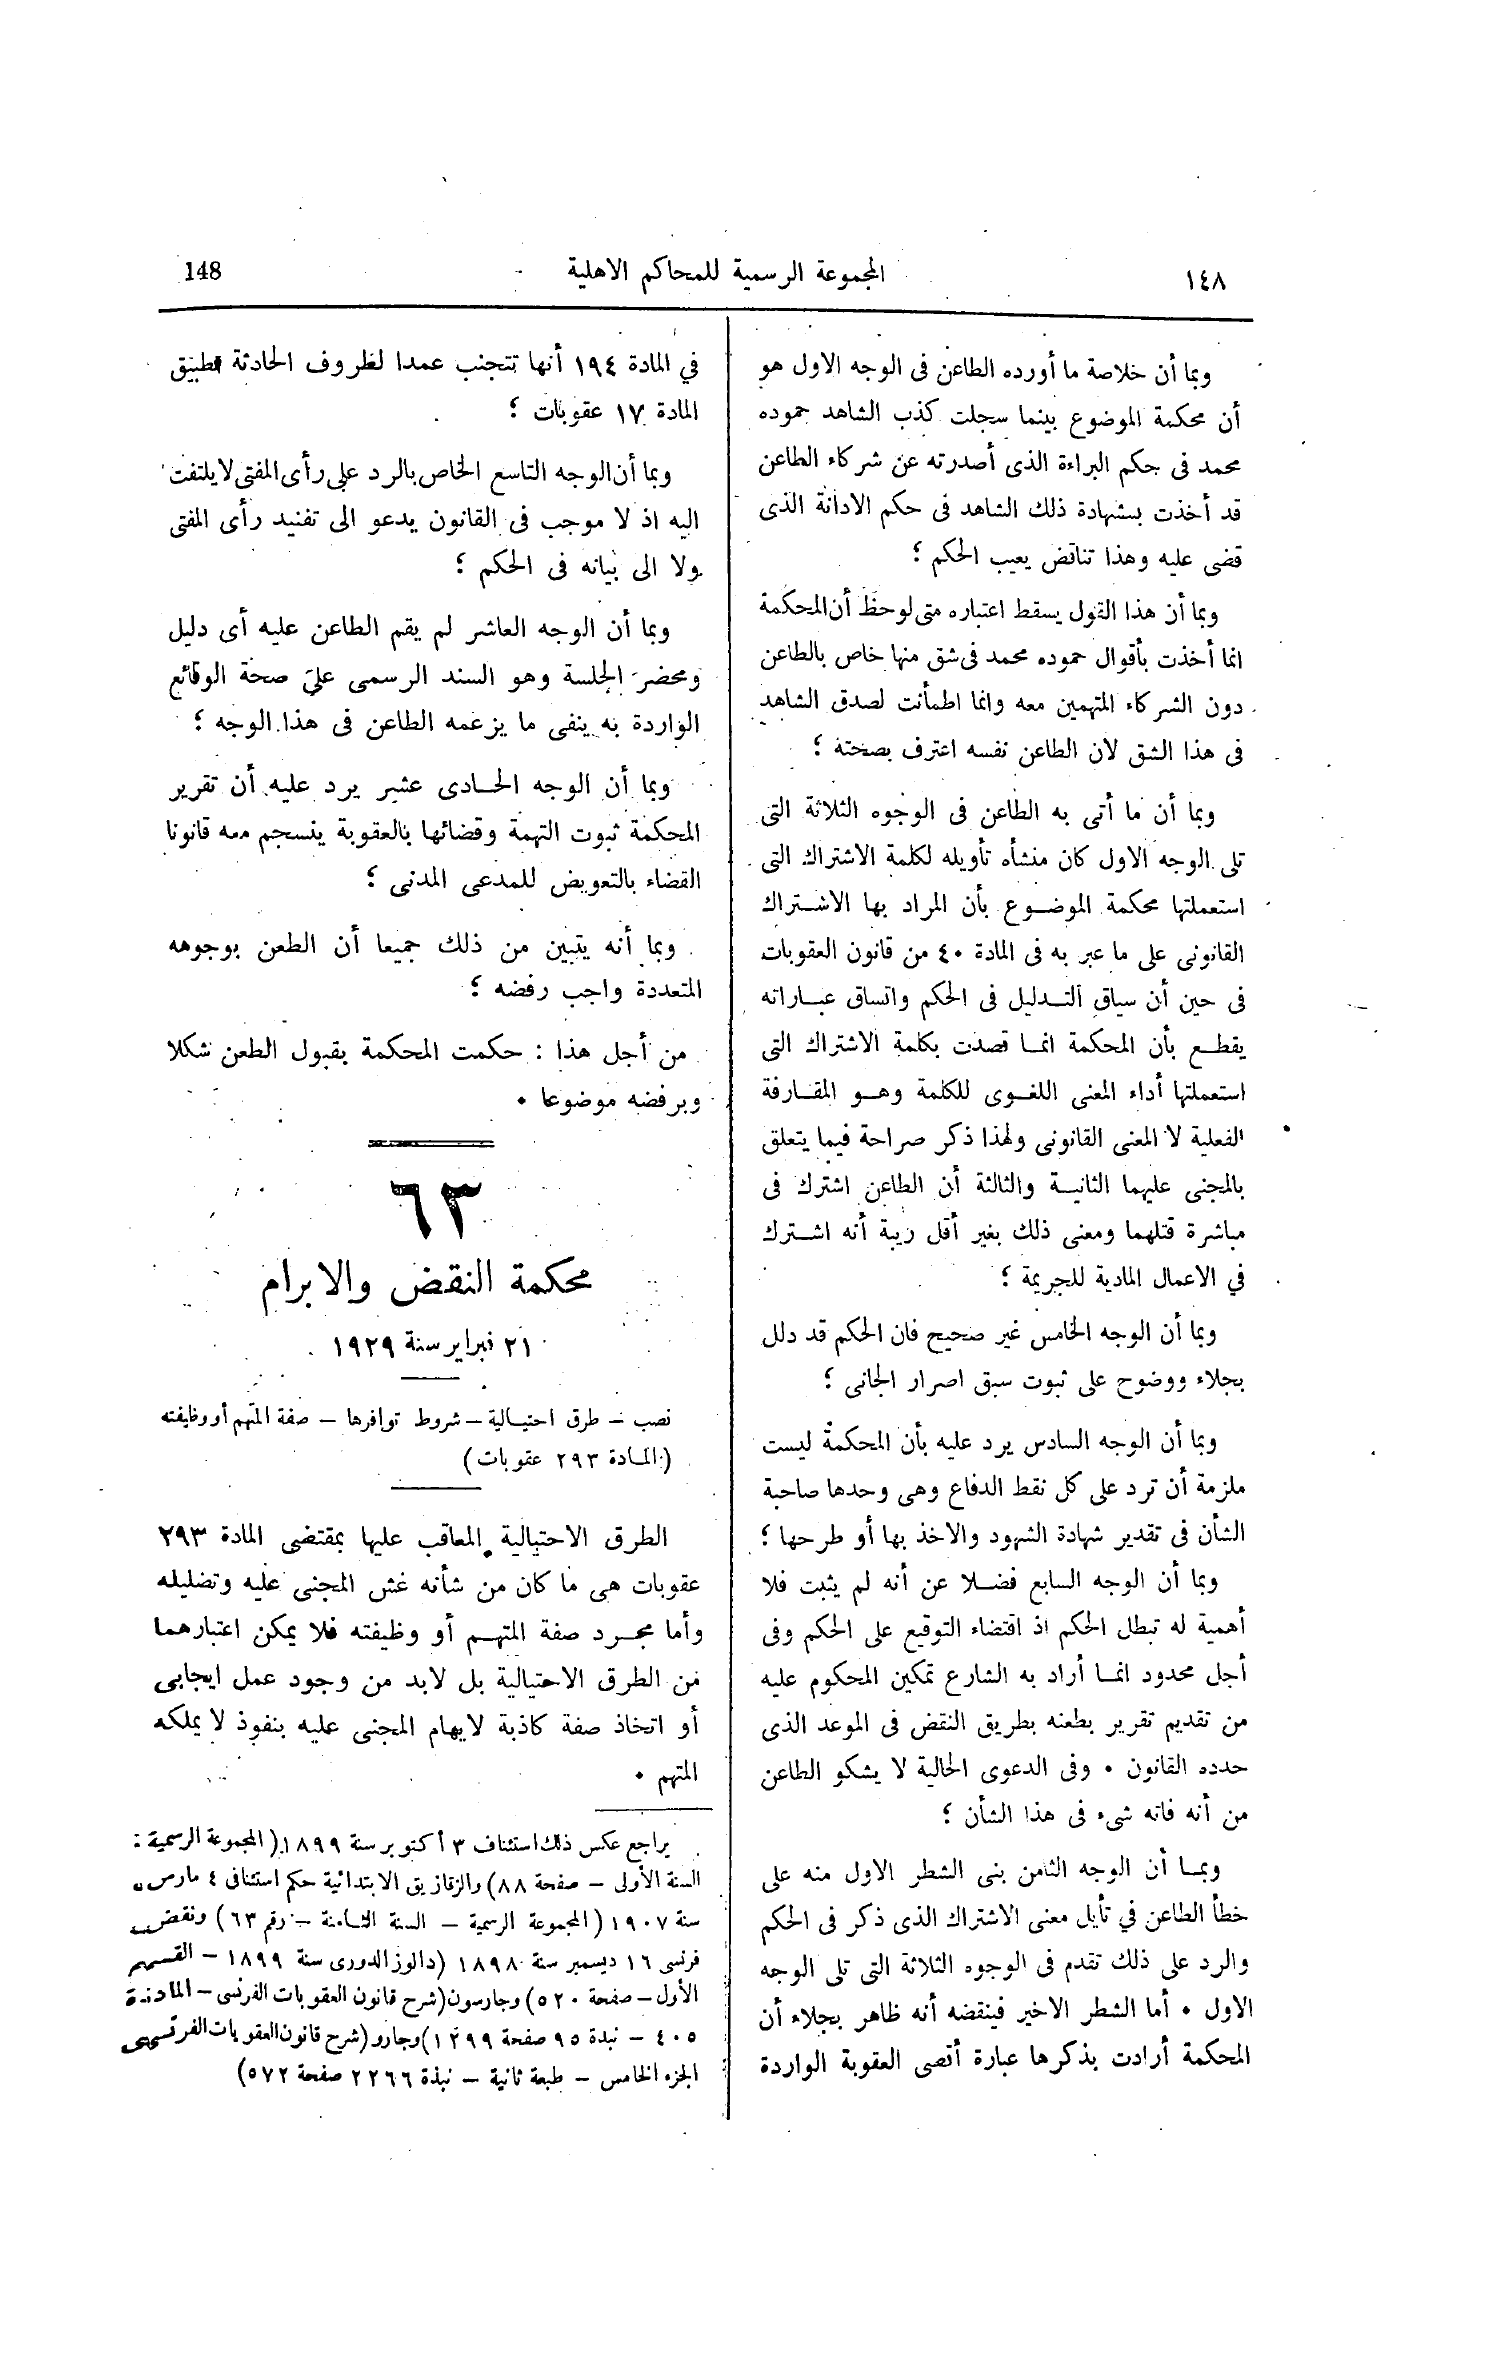 ١٤٨ المجموعة الرسمية للمحاكم الاهلية 148
وبما أن خلاصة ما أورده الطاعن فى الوجه الاول هو
أن محكمة الموضوع بينما سجلت كذب الشاهد حموده
محمد فى حكم البراءة الذى أصدرته عن شركاء الطاعن
قد أخذت بشهادة ذلك الشاهد فى حكم الادانة الذى
قضى عليه وهذا تناقض يعيب الحكم ؛
وبما أن هذا القول يسقط اعتباره متى لوحظ أن المحكمة
انما أخذت بأقوال حموده محمد فى شق منها خاص بالطاعن
دون الشركاء المتهمين معه وانما اطمأنت لصدق الشاهد
فى هذا الشق لان الطاعن نفسه اعترف بصحته ؛
وبما أن ما أتى به الطاعن فى الوجوه الثلاثة التى
تلى الوجه الاول كان منشأه تأويله لكلمة الاشتراك التى
استعملتها محكمة الموضوع بأن المراد بها الاشتراك
القانونى على ما عبر به فى المادة ٤٠ من قانون العقوبات
فى حين أن سياق التدليل فى الحكم واتساق عباراته
يقطع بأن المحكمة انما قصدت بكلمة الاشتراك التى
استعملتها أداء المعنى اللغوى للكلمة وهو المقارفة
الفعلية لا المعنى القانونى ولهذا ذكر صراحة فيما يتعلق
بالمجنى عليهما الثانية والثالثة أن الطاعن اشترك فى
مباشرة قتلهما ومعنى ذلك بغير أقل ريبة أنه اشترك
في الاعمال المادية للجريمة ؛
وبما أن الوجه الخامس غير صحيح فان الحكم قد دلل
بجلاء ووضوح على ثبوت سبق اصرار الجانى ؛
وبما أن الوجه السادس يرد عليه بأن المحكمة ليست
ملزمة أن ترد على كل نقط الدفاع وهى وحدها صاحبة
الشأن فى تقدير شهادة الشهود والاخذ بها أو طرحها ؛
وبما أن الوجه السابع فضلا عن أنه لم يثبت فلا
أهمية له تبطل الحكم اذ اقتضاء التوقيع على الحكم وفى
أجل محدود انما أراد به الشارع تمكين المحكوم عليه
من تقديم تقرير بطعنه بطريق النقض فى الموعد الذى
حدده القانون ٠ وفى الدعوى الحالية لا يشكو الطاعن
من أنه فاته شىء فى هذا الشأن ؛
وبما أن الوجه الثامن بنى الشطر الاول منه على
خطأ الطاعن في تأيل معنى الاشتراك الذى ذكر فى الحكم
والرد على ذلك تقدم فى الوجوه الثلاثة التى تلى الوجه
الاول ٠ أما الشطر الاخير فينقضه أنه ظاهر بجلاء أن
المحكمة أرادت بذكرها عبارة أقصى العقوبة الواردة
في المادة ١٩٤ أنها تتجنب عمدا لظروف الحادثة تطبيق
المادة ١٧ عقوبات ؛
وبما أن الوجه التاسع الخاص بالرد على رأى المفتى لا يلتفت
اليه اذ لا موجب فى القانون يدعو الى تفنيد رأى المفتى
ولا الى بيانه فى الحكم ؛
وبما أن الوجه العاشر لم يقم الطاعن عليه أى دليل
ومحضر الجلسة وهو السند الرسمى على صحة الوقائع
الواردة به ينفى ما يزعمه الطاعن فى هذا الوجه ؛
وبما أن الوجه الحادى عشر يرد عليه أن تقرير
المحكمة ثبوت التهمة وقضائها بالعقوبة ينسجم معه قانونا
القضاء بالتعويض للمدعى المدنى ؛
وبما أنه يتبين من ذلك جميعا أن الطعن بوجوهه
المتعددة واجب رفضه ؛
من أجل هذا : حكمت المحكمة بقبول الطعن شكلا
وبرفضه موضوعا ٠
٦٣
محكمة النقض والابرام
٢١ فبراير سنة ١٩٢٩
نصب – طرق احتيالية – شروط توافرها – صفة المتهم أو وظيفته
(المادة ٢٩٣ عقوبات)
الطرق الاحتيالية المعاقب عليها بمقتضى المادة ٢٩٣
عقوبات هى ما كان من شأنه غش المجنى عليه وتضليله
وأما مجرد صفة المتهم أو وظيفته فلا يمكن اعتبارهما
من الطرق الاحتيالية بل لابد من وجود عمل ايجابى
أو اتخاذ صفة كاذبة لايهام المجنى عليه بنفوذ لا يملكه
المتهم ٠
يراجع عكس ذلك استئناف ٣ أكتوبر سنة ١٨٩٩ (المجموعة الرسمية :
السنة الأولى – صفحة ٨٨) والزقازيق الابتدائية حكم استئنافى ٤ مارس
سنة ١٩٠٧ (المجموعة الرسمية – السنة الثامنة – رقم ٦٣) ونقض
فرنسى ١٦ ديسمبر سنة ١٨٩٨ (دالوز الدورى سنة ١٨٩٩ – القسم
الأول – صفحة ٥٢٠) وجارسون (شرح قانون العقوبات الفرنسى – المادة
٤٠٥ – نبذة ٩٥ صفحة ١٢٩٩) وجارو (شرح قانون العقوبات الفرنسى
الجزء الخامس – طبعة ثانية – نبذة ٢٢٦٦ صفحة ٥٧٢)